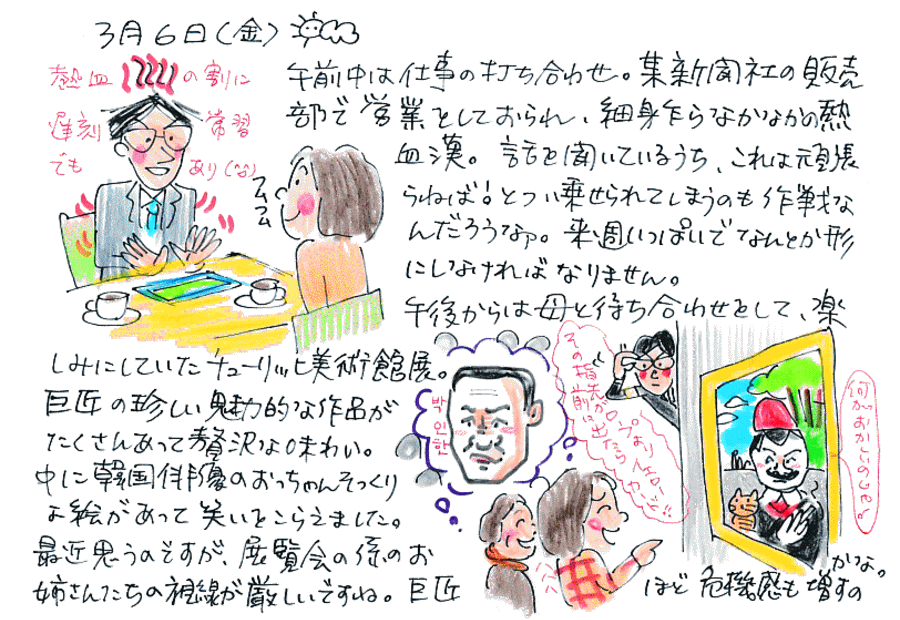 3月6日(金)
熱血の割に
遅刻常習
でもあり(^^)
フムフム
午前中は仕事の打ち合わせ。某新聞社の販売
部で営業としておられ、細身乍らなかなかの熱
血漢。話を聞いているうち、これは頑張
らねば!とつい乗せられてしまうのも作戦な
んだろうなァ。来週いっぱいでなんとか形
にしなければなりません。
午後からは母と待ち合わせをして、楽
しみにしていたチューリッヒ美術館展。
巨匠の珍しい魅力的な作品が
たくさんあって贅沢な味わい。
中に韓国俳優のおっちゃんそっくり
な絵があって笑いをこらえました。
最近思うのですが、展覧会の係のお
姉さんたちの視線が厳しいですね。巨匠
ほど危機感も増すの
かな。
박인환
その指先が
前に出たら
何がおかしいのじゃ。